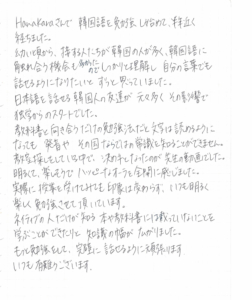 Hanakaraさんで 韓国語を勉強しはじめて、半年近く
経ちました。
幼い頃から、接する人たちが韓国の人が多く、韓国語に
触れ合う機会も多かったのでしっかりと理解し 自分の言葉でも
話せるようになりたいと ずっと思っていました。
日本語を話せる韓国人の友達が 元々多く その影響で
独学からのスタートでした。
教科書と向き合うだけの勉強法だと文字は読めるように
なっても 発音や その国ならではの知識を知ることができません。
教室探しをしている中で、決め手となったのが 先生の動画でした。
明るくて、楽しそうで ハッピーなオーラを全開に感じました。
実際に 授業を受けてみても 印象は変わらず、いつも明るく
楽しく勉強させて頂いています。
ネイティブの人だけが知る 本や教科書には載っていないことを
学ぶことができたりと 知識の幅が広がりました。
もっと勉強をして、完璧に 話せるように頑張ります
いつも有難うございます。